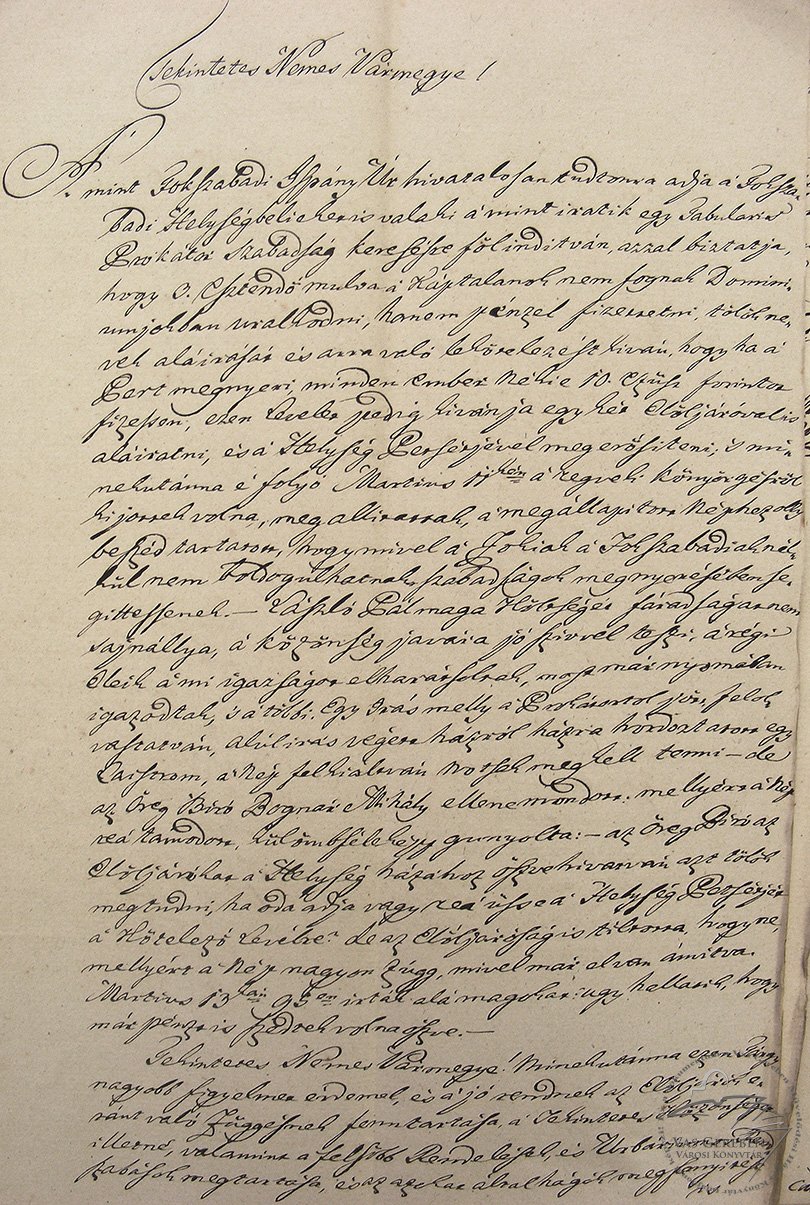 Tekintetes Nemes Vármegye!
A' mint Fokszabadi Ispány Úr hivatalosan tudtomra adja á Foksza-
badi Helységbelieket is valaki á mint iratik egy Tabularis
Prokátor szabadság keresésre fölinditván, azzal biztatja,
hogy 3. Esztendő mulva á Káptalanok nem fognak Domini-
umjokban uralkodni, hanem pénzel fizettetni, tölök ne-
vek aláirását és arra való lekötelezést kiván, hogy ha á
Pert megnyeri, minden Ember nékie 10. Ezüst forintot
fizessen, ezen Levelet pedig kivánja egy két Elöljáróval is
aláiratni, és á Helység Petsétjével megerösiteni, is mi-
nekutánna é folyó Martius 11kén á reggeli könyörgésröl
kijöttek volna, megállitattak, á megállapitott Néphez olly
beszéd tartatott, hogy mivel á Fokiak á Fokszabadiak nél-
kül nem boldogulhatnak, szabadságok megnyerésében se-
gittessenek. — László Pál maga Költségét fáradságát nem
sajnállya, á közönség javára jó szivvel teszi, á régi
Eleik á mi igazságot elhatároltak, most már nyomában
igazodtak, 's á többi. Egy Irás melly á Prokátortol jött, felol-
vastatván, alúlirás végett házról házra hordoztatott egy
Laistrom, á Nép felkialtván Notsek meg kell tenni — de
az Öreg Biró Bognár Mihály ellene mondott: mellyért á Nép
reá támodott, külömbféleképp gunyolta: — az Öreg Biró az
Elöljárókat á Helység házához öszvehivatván azt tölök
megtudni, ha oda adja vagy reá üsse á Helység Petsétjét
á Kötelező Levélre? de az Elöljáróság is tiltotta, hogy ne,
mellyért á Nép nagyon zúgg, mivel már el van ámitva.
Martius 13kán 95en irták alá magokat: ugy hellatik, hogy
már pénzt is szedtek volna öszve. —
Tekintetes Nemes Vármegye! Minekutánna ezen Tárgy
nagyobb figyelmet érdemel, és á jó rendnek az Elöljárók e-
ránt való Függésnek fenntartása, á Tekintetes Közönséget
illetné, valamint á felsöbb Rendelések, és Urbáriomi Rend
szabások megtartása, és az azokat által hágók megfenyitése
VAS GEREBEN
VÁROSI KÖNYVTÁR